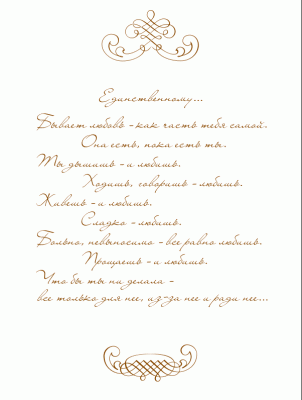 Единственному...
Бывает любовь - как часть тебя самой.
Она есть, пока есть ты.
Ты дышишь - и любишь.
Ходишь, говоришь - любишь.
Живешь - и любишь.
Сладко - любишь.
Больно, невыносимо - все равно любишь.
Прощаешь - и любишь.
Что бы ты ни делала -
все только для нее, из-за нее и ради нее...